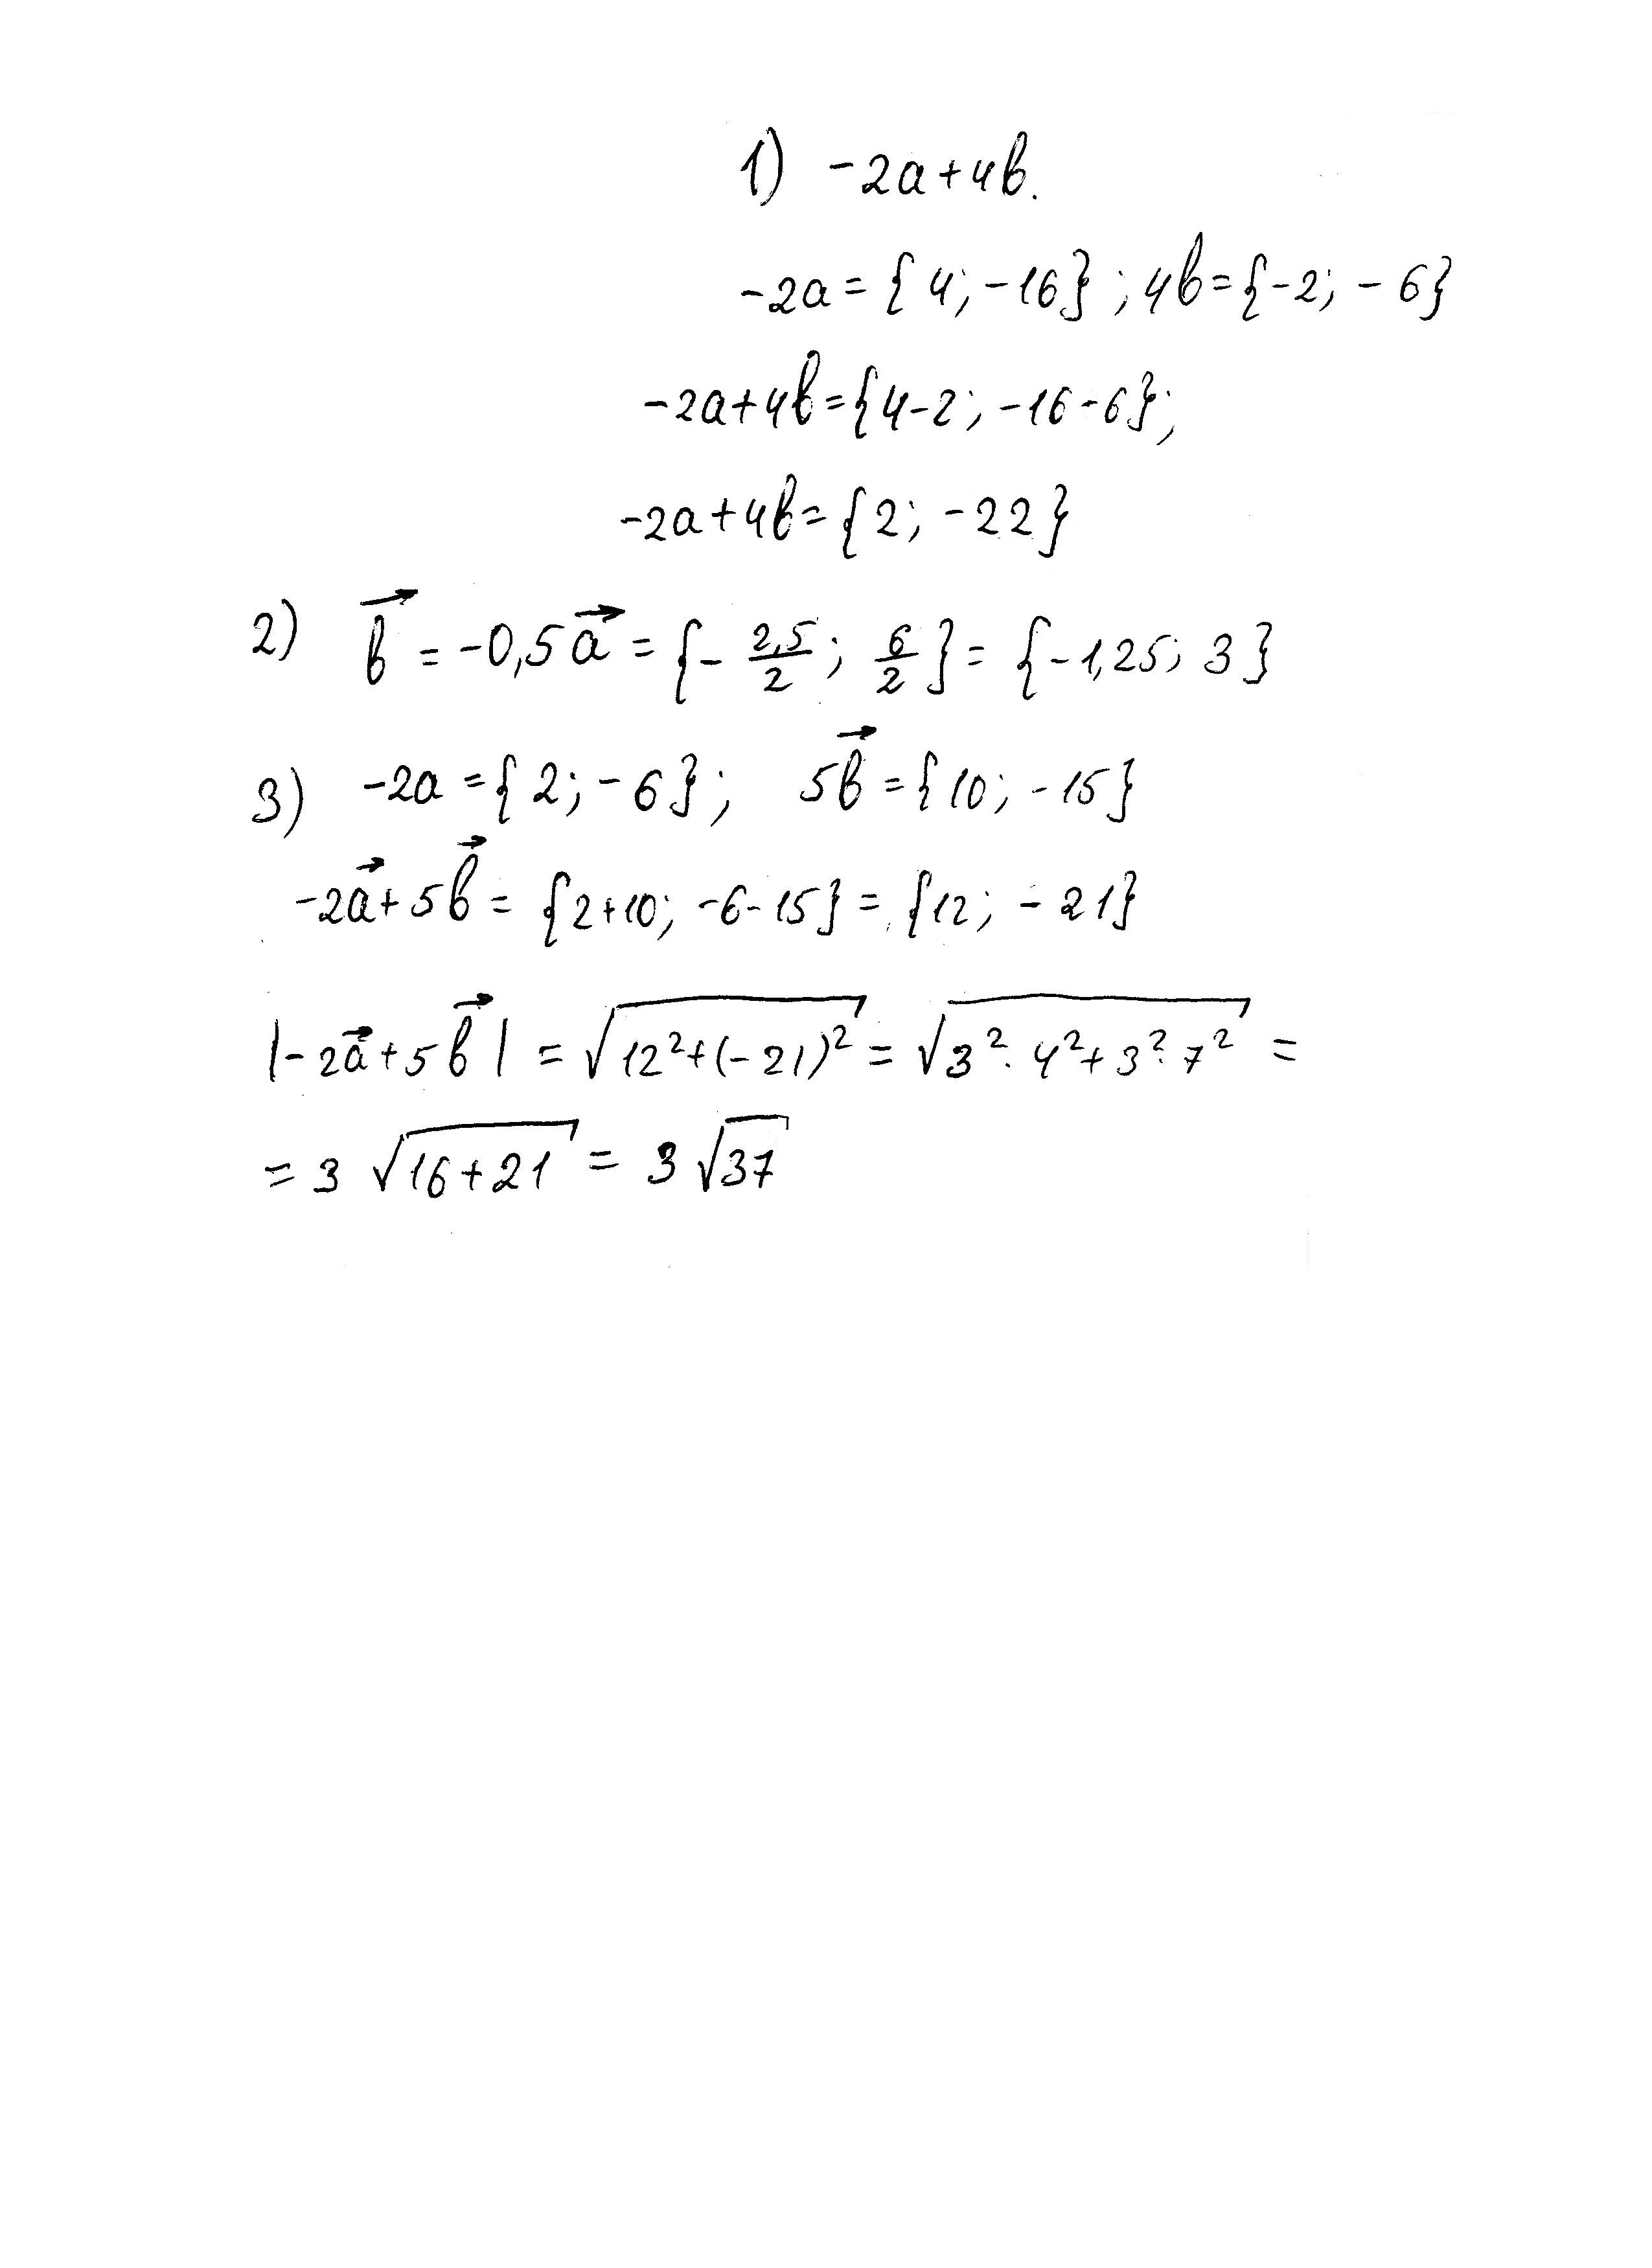 1) -2a+4b.
-2a={4;-16}; 4b={-2; -6}
-2a+4b={4-2; -16-6};
-2a+4b={2; -22}
2) b⃗ = -0,5a⃗ = {-2,5/2; 6/2} = {-1,25; 3}
3) -2a={2;-6}; 5b⃗={10; -15}
-2a⃗+5b⃗= {2+10; -6-15}= {12; -21}
|-2a⃗+5b⃗| = √(12²+(-21)²) = √(3²·4²+3²·7²) =
= 3√(16+21) = 3√37